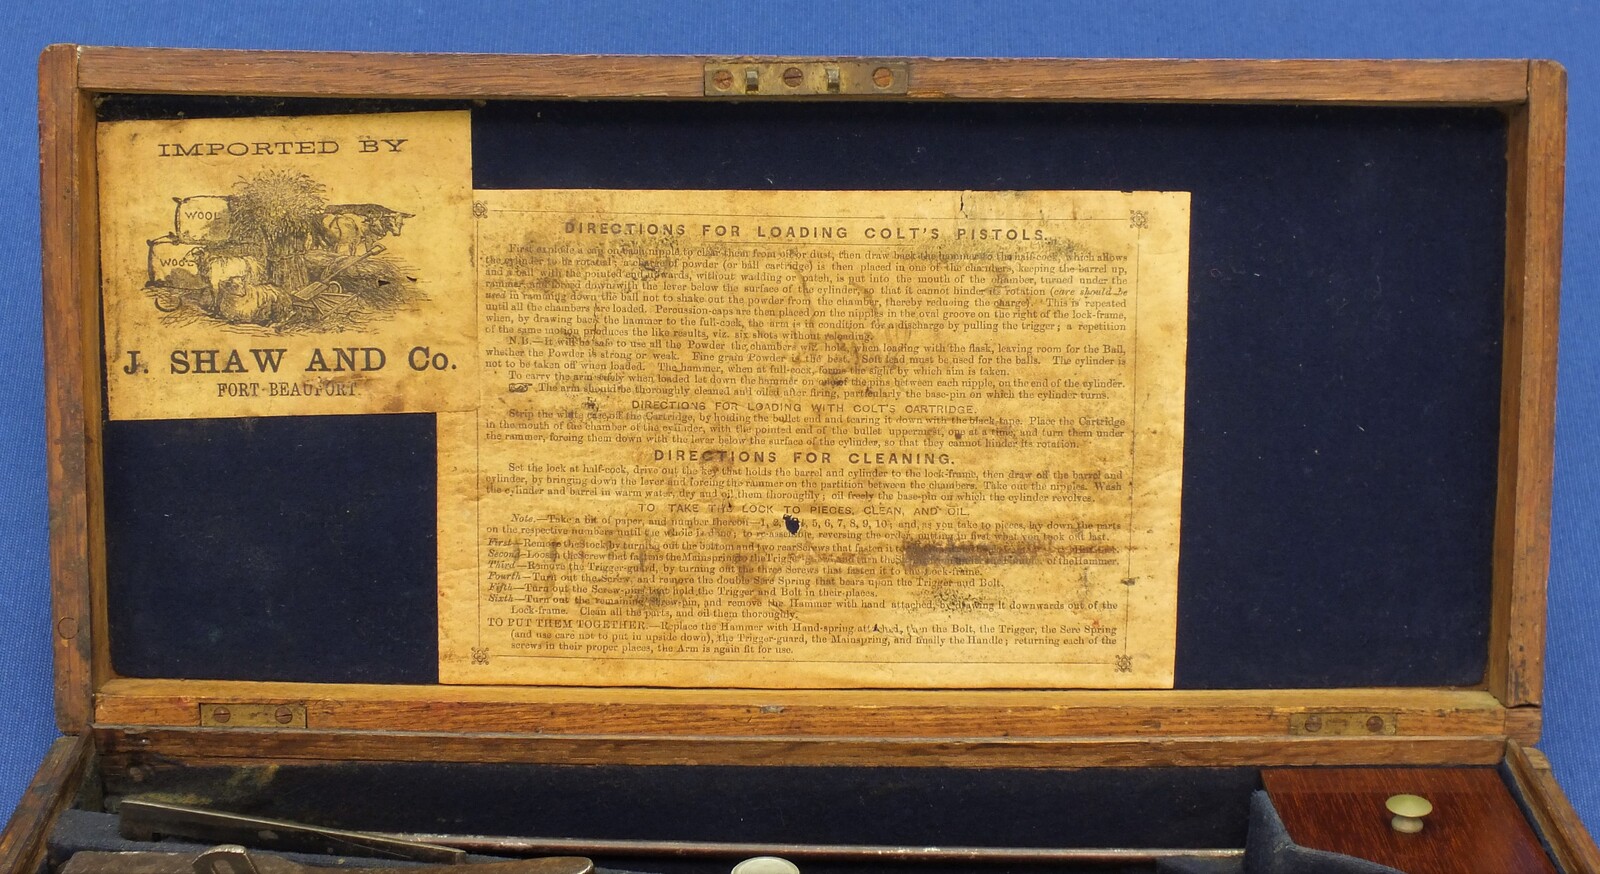 IMPORTED BY
WOOL
WOOL
J. SHAW AND Co.
FORT-BEAUFORT.
DIRECTIONS FOR LOADING COLT'S PISTOLS.
First explode a cap on each nipple to clear them from oil or dust, then draw back the hammer to the half-cock, which allows
the cylinder to be rotated; a charge of powder (or ball cartridge) is then placed in one of the chambers, keeping the barrel up,
and a ball with the pointed end upwards, without wadding or patch, is put into the mouth of the chamber, turned under the
rammer, and forced down with the lever below the surface of the cylinder, so that it cannot hinder its rotation (care should be
used in ramming down the ball not to shake out the powder from the chamber, thereby reducing the charge). This is repeated
until all the chambers are loaded. Percussion-caps are then placed on the nipples in the oval groove on the right of the lock-frame,
when, by drawing back the hammer to the full-cock, the arm is in condition for a discharge by pulling the trigger; a repetition
of the same motion produces the like results, viz. six shots without reloading.
N.B.—It will be safe to use all the Powder the chambers will hold, when loading with the flask, leaving room for the Ball,
whether the Powder is strong or weak. Fine grain Powder is the best. Soft lead must be used for the balls. The cylinder is
not to be taken off when loaded. The hammer, when at full-cock, forms the sight by which aim is taken.
To carry the arm safely when loaded let down the hammer on one of the pins between each nipple, on the end of the cylinder.
☞ The arm should be thoroughly cleaned and oiled after firing, particularly the base-pin on which the cylinder turns.
DIRECTIONS FOR LOADING WITH COLT'S CARTRIDGE.
Strip the white case off the Cartridge, by holding the bullet end and tearing it down with the black tape. Place the Cartridge
in the mouth of the chamber of the cylinder, with the pointed end of the bullet uppermost, one at a time, and turn them under
the rammer, forcing them down with the lever below the surface of the cylinder, so that they cannot hinder its rotation.
DIRECTIONS FOR CLEANING.
Set the lock at half-cock, drive out the key that holds the barrel and cylinder to the lock-frame, then draw off the barrel and
cylinder, by bringing down the lever and forcing the rammer on the partition between the chambers. Take out the nipples. Wash
the cylinder and barrel in warm water, dry and oil them thoroughly; oil freely the base-pin on which the cylinder revolves.
TO TAKE THE LOCK TO PIECES, CLEAN, AND OIL.
Note.—Take a bit of paper, and number thereon—1, 2, 4, 5, 6, 7, 8, 9, 10; and, as you take to pieces, lay down the parts
on the respective numbers until the whole is done; to re-assemble, reversing the order, putting in first what you took out last.
First—Remove the Stock by turning out the bottom and two rear Screws that fasten it
Second—Loosen the Screw that fastens the Mainspring to the Trigger-guard, and turn the of the Hammer.
Third—Remove the Trigger-guard, by turning out the three Screws that fasten it to the Lock-frame.
Fourth—Turn out the Screw, and remove the double Sere Spring that bears upon the Trigger and Bolt.
Fifth—Turn out the Screw-pins that hold the Trigger and Bolt in their places.
Sixth—Turn out the remaining Screw-pin, and remove the Hammer with hand attached, by drawing it downwards out of the
Lock-frame. Clean all the parts, and oil them thoroughly.
TO PUT THEM TOGETHER.—Replace the Hammer with Hand-spring attached, then the Bolt, the Trigger, the Sere Spring
(and use care not to put in upside down), the Trigger-guard, the Mainspring, and finally the Handle; returning each of the
screws in their proper places, the Arm is again fit for use.